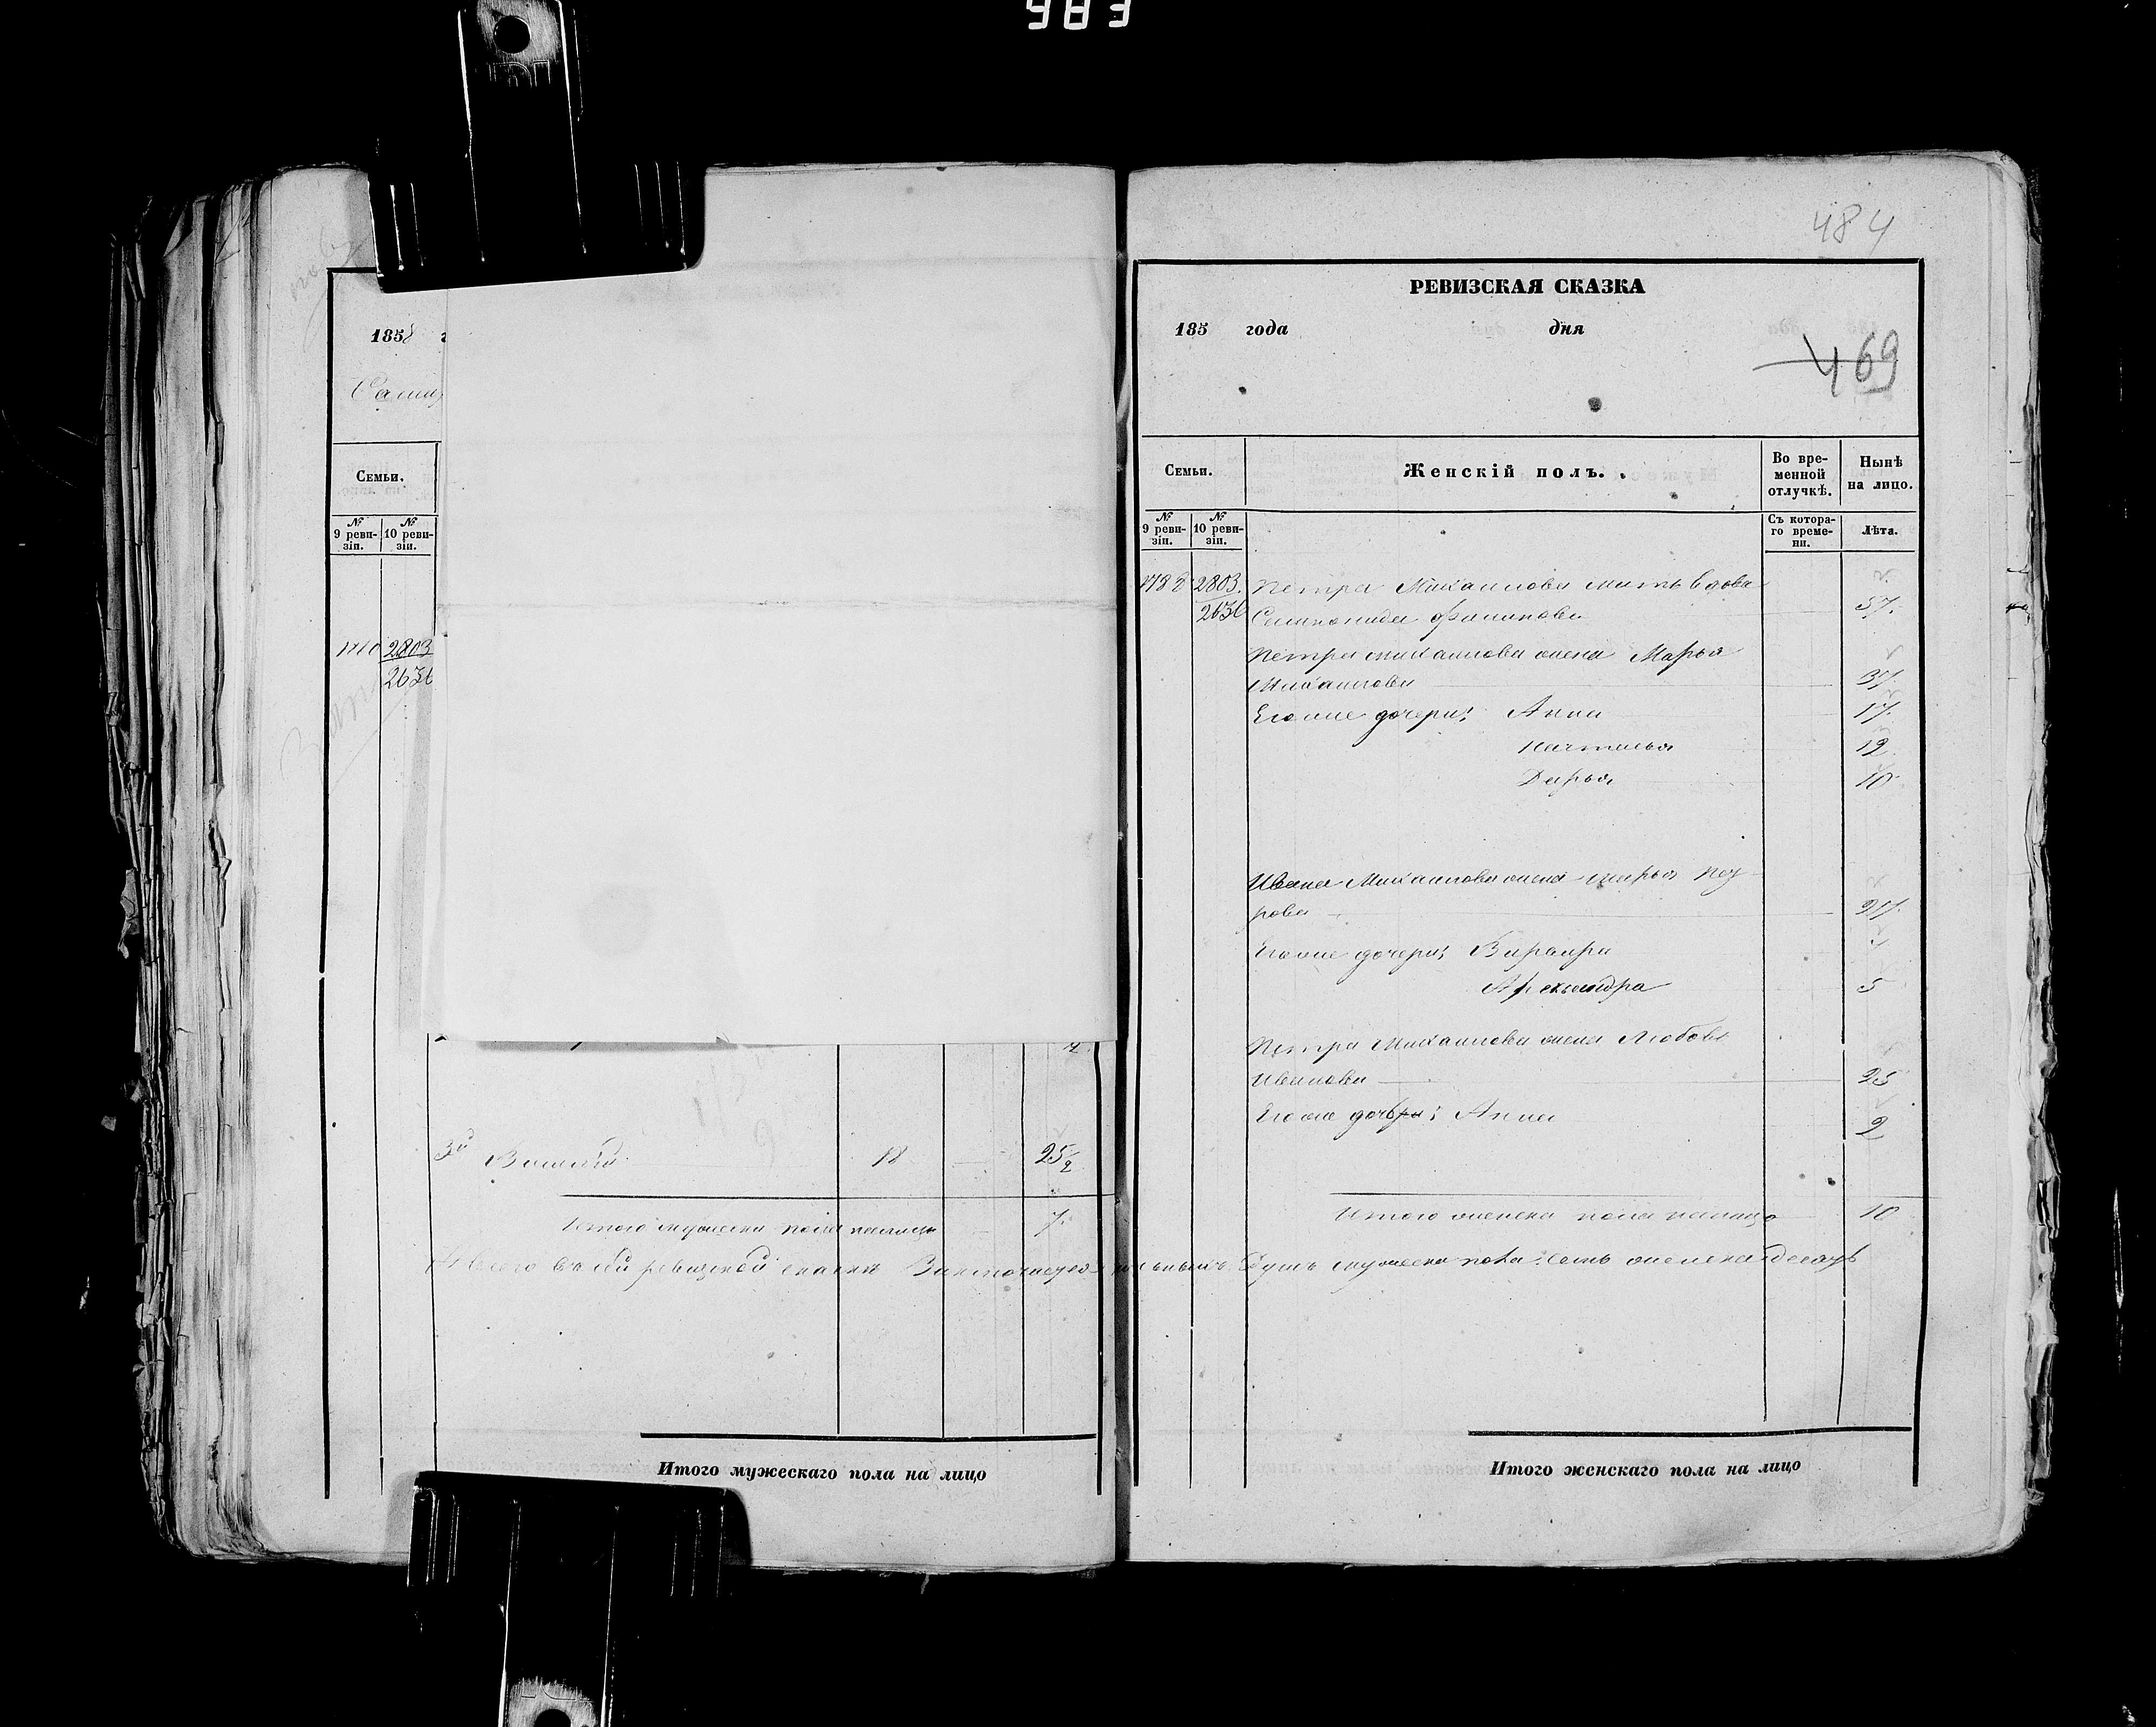 983
185
Семьи.
№ 9 реви-зіи. № 10 реви-зіи.
2803
2636
3й Василій 18 25½
Итого мужеска пола налицо 7.
Итого мужескаго пола на лицо
484
РЕВИЗСКАЯ СКАЗКА
185 года дня
469
Семьи. Женскій полъ. Во вре-менной отлучкѣ. Нынѣ на лицо.
№ 9 реви-зіи. № 10 реви-зіи. Съ котора-го време-ни. Лѣта.
1788 2803. Петра Михаилова мать вдова
2636 57.
Петра Михаилова жена Марья
Михаилова 37.
Его же дочери: Анна 17.
Наталья 12
Дарья 10
Ивана Михаилова жена Марья Пет
рова 27.
Его же дочери: Варвара
Александра 5
Петра Михаилова жена Любовь
Иванова 25
Его же дочь: Анна 2
Итого женска пола налицо 10
А всего въ сей ревизской сказкѣ душъ мужеска пола: семь женска десять
Итого женскаго пола на лицо